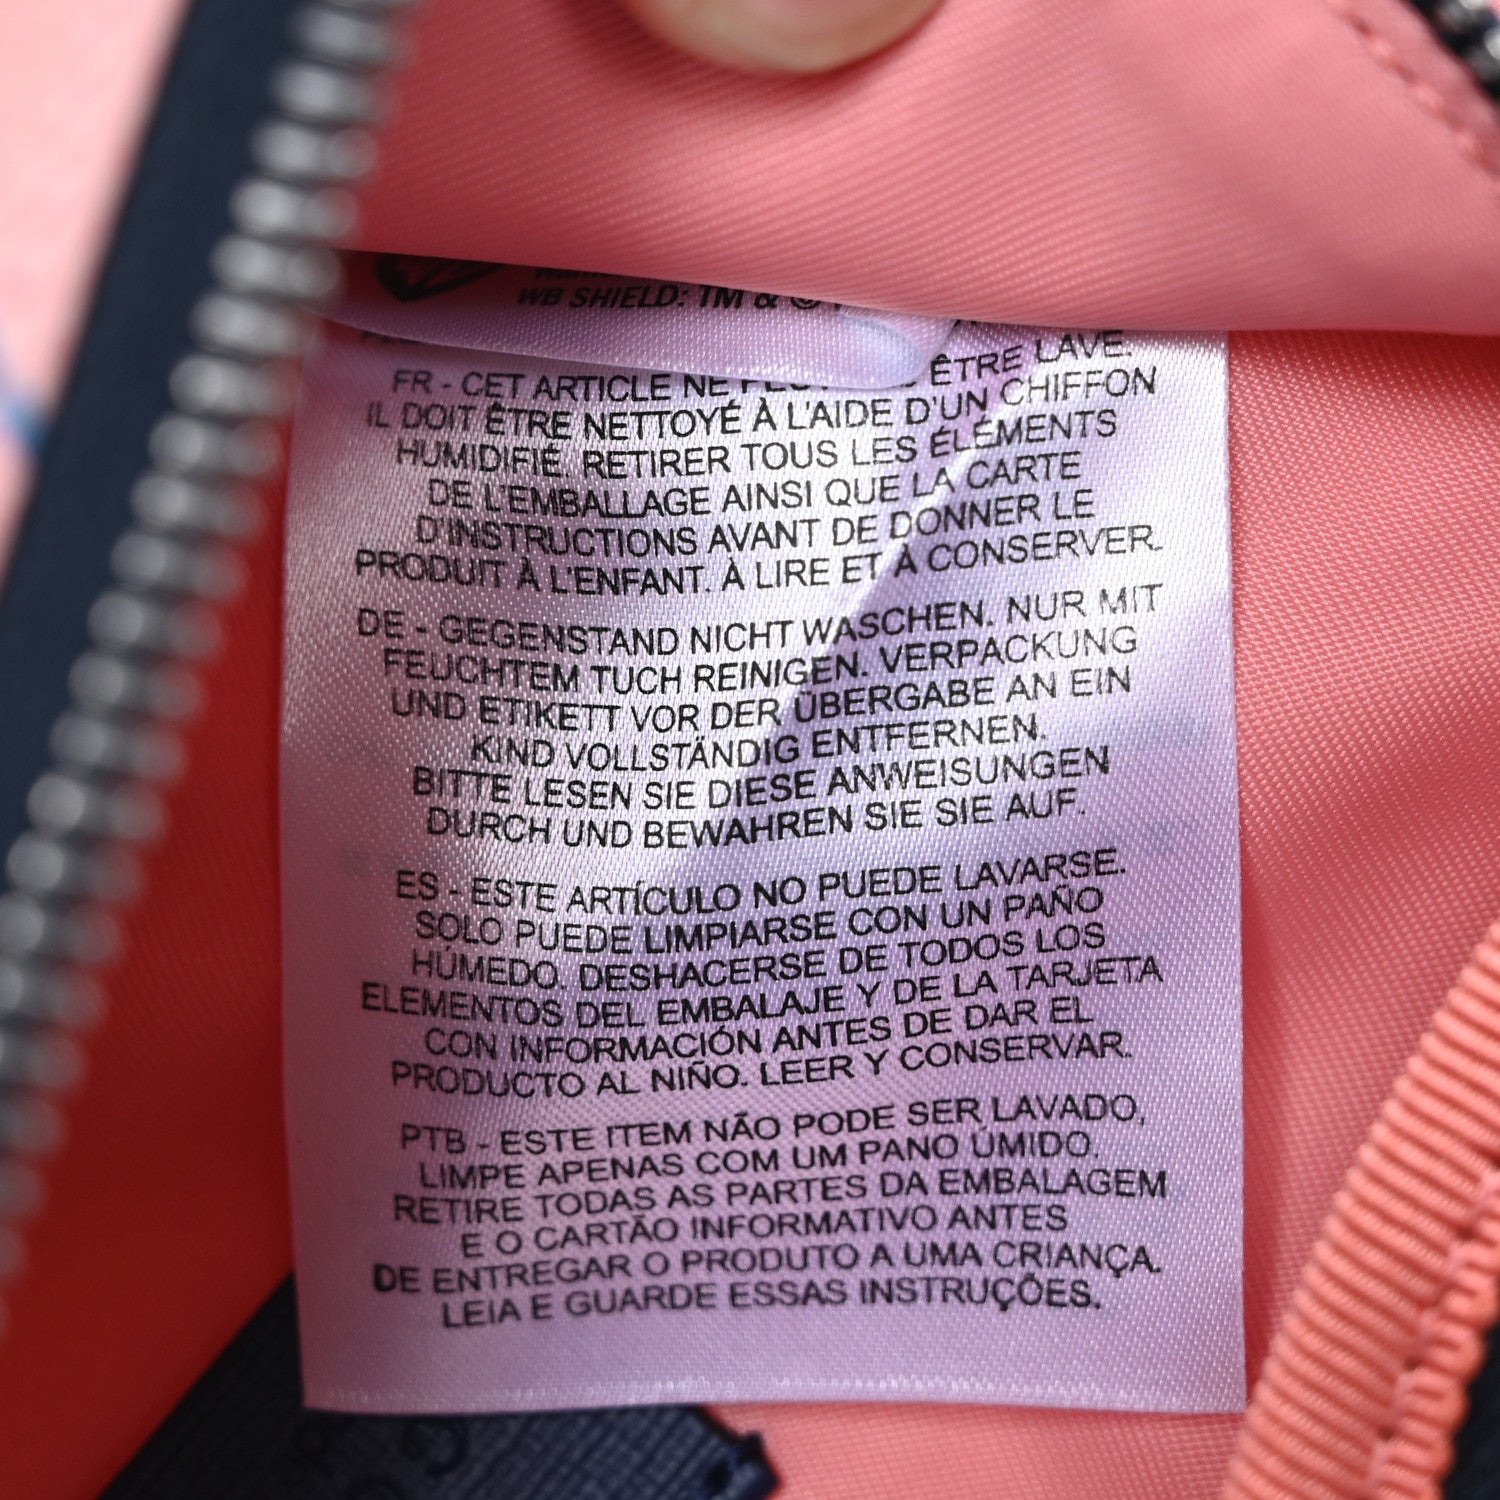 WB SHIELD: TM & ©
FR - CET ARTICLE NE ÊTRE LAVÉ.
IL DOIT ÊTRE NETTOYÉ À L'AIDE D'UN CHIFFON
HUMIDIFIÉ. RETIRER TOUS LES ÉLÉMENTS
DE L'EMBALLAGE AINSI QUE LA CARTE
D'INSTRUCTIONS AVANT DE DONNER LE
PRODUIT À L'ENFANT. À LIRE ET À CONSERVER.
DE - GEGENSTAND NICHT WASCHEN. NUR MIT
FEUCHTEM TUCH REINIGEN. VERPACKUNG
UND ETIKETT VOR DER ÜBERGABE AN EIN
KIND VOLLSTÄNDIG ENTFERNEN.
BITTE LESEN SIE DIESE ANWEISUNGEN
DURCH UND BEWAHREN SIE SIE AUF.
ES - ESTE ARTÍCULO NO PUEDE LAVARSE.
SOLO PUEDE LIMPIARSE CON UN PAÑO
HÚMEDO. DESHACERSE DE TODOS LOS
ELEMENTOS DEL EMBALAJE Y DE LA TARJETA
CON INFORMACIÓN ANTES DE DAR EL
PRODUCTO AL NIÑO. LEER Y CONSERVAR.
PTB - ESTE ITEM NÃO PODE SER LAVADO,
LIMPE APENAS COM UM PANO ÚMIDO.
RETIRE TODAS AS PARTES DA EMBALAGEM
E O CARTÃO INFORMATIVO ANTES
DE ENTREGAR O PRODUTO A UMA CRIANÇA.
LEIA E GUARDE ESSAS INSTRUÇÕES.